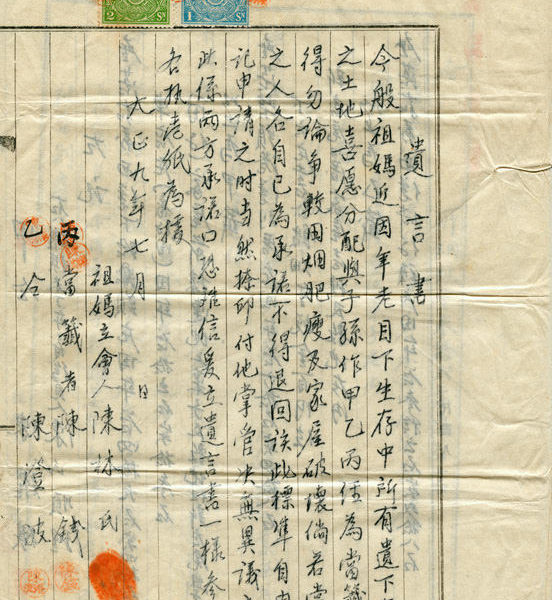 遺言書
今般祖媽近因年老目下生存中所有遺下
之土地喜愿分配與子孫作甲乙丙任為當籤
得勿論爭較田畑肥瘦及家屋破壞倘若當
之人各自已為承諾不得退回該此標準自
記申請之時當然捺印付他掌管决無異議
此係兩方承諾口恐難信爰立遺言書一樣參
各執壱紙為
大正九年七月 日
祖媽立會人陳林氏
丙 當籤者陳 錢
乙 仝 陳澄波
2 Sn.
1 Sn.